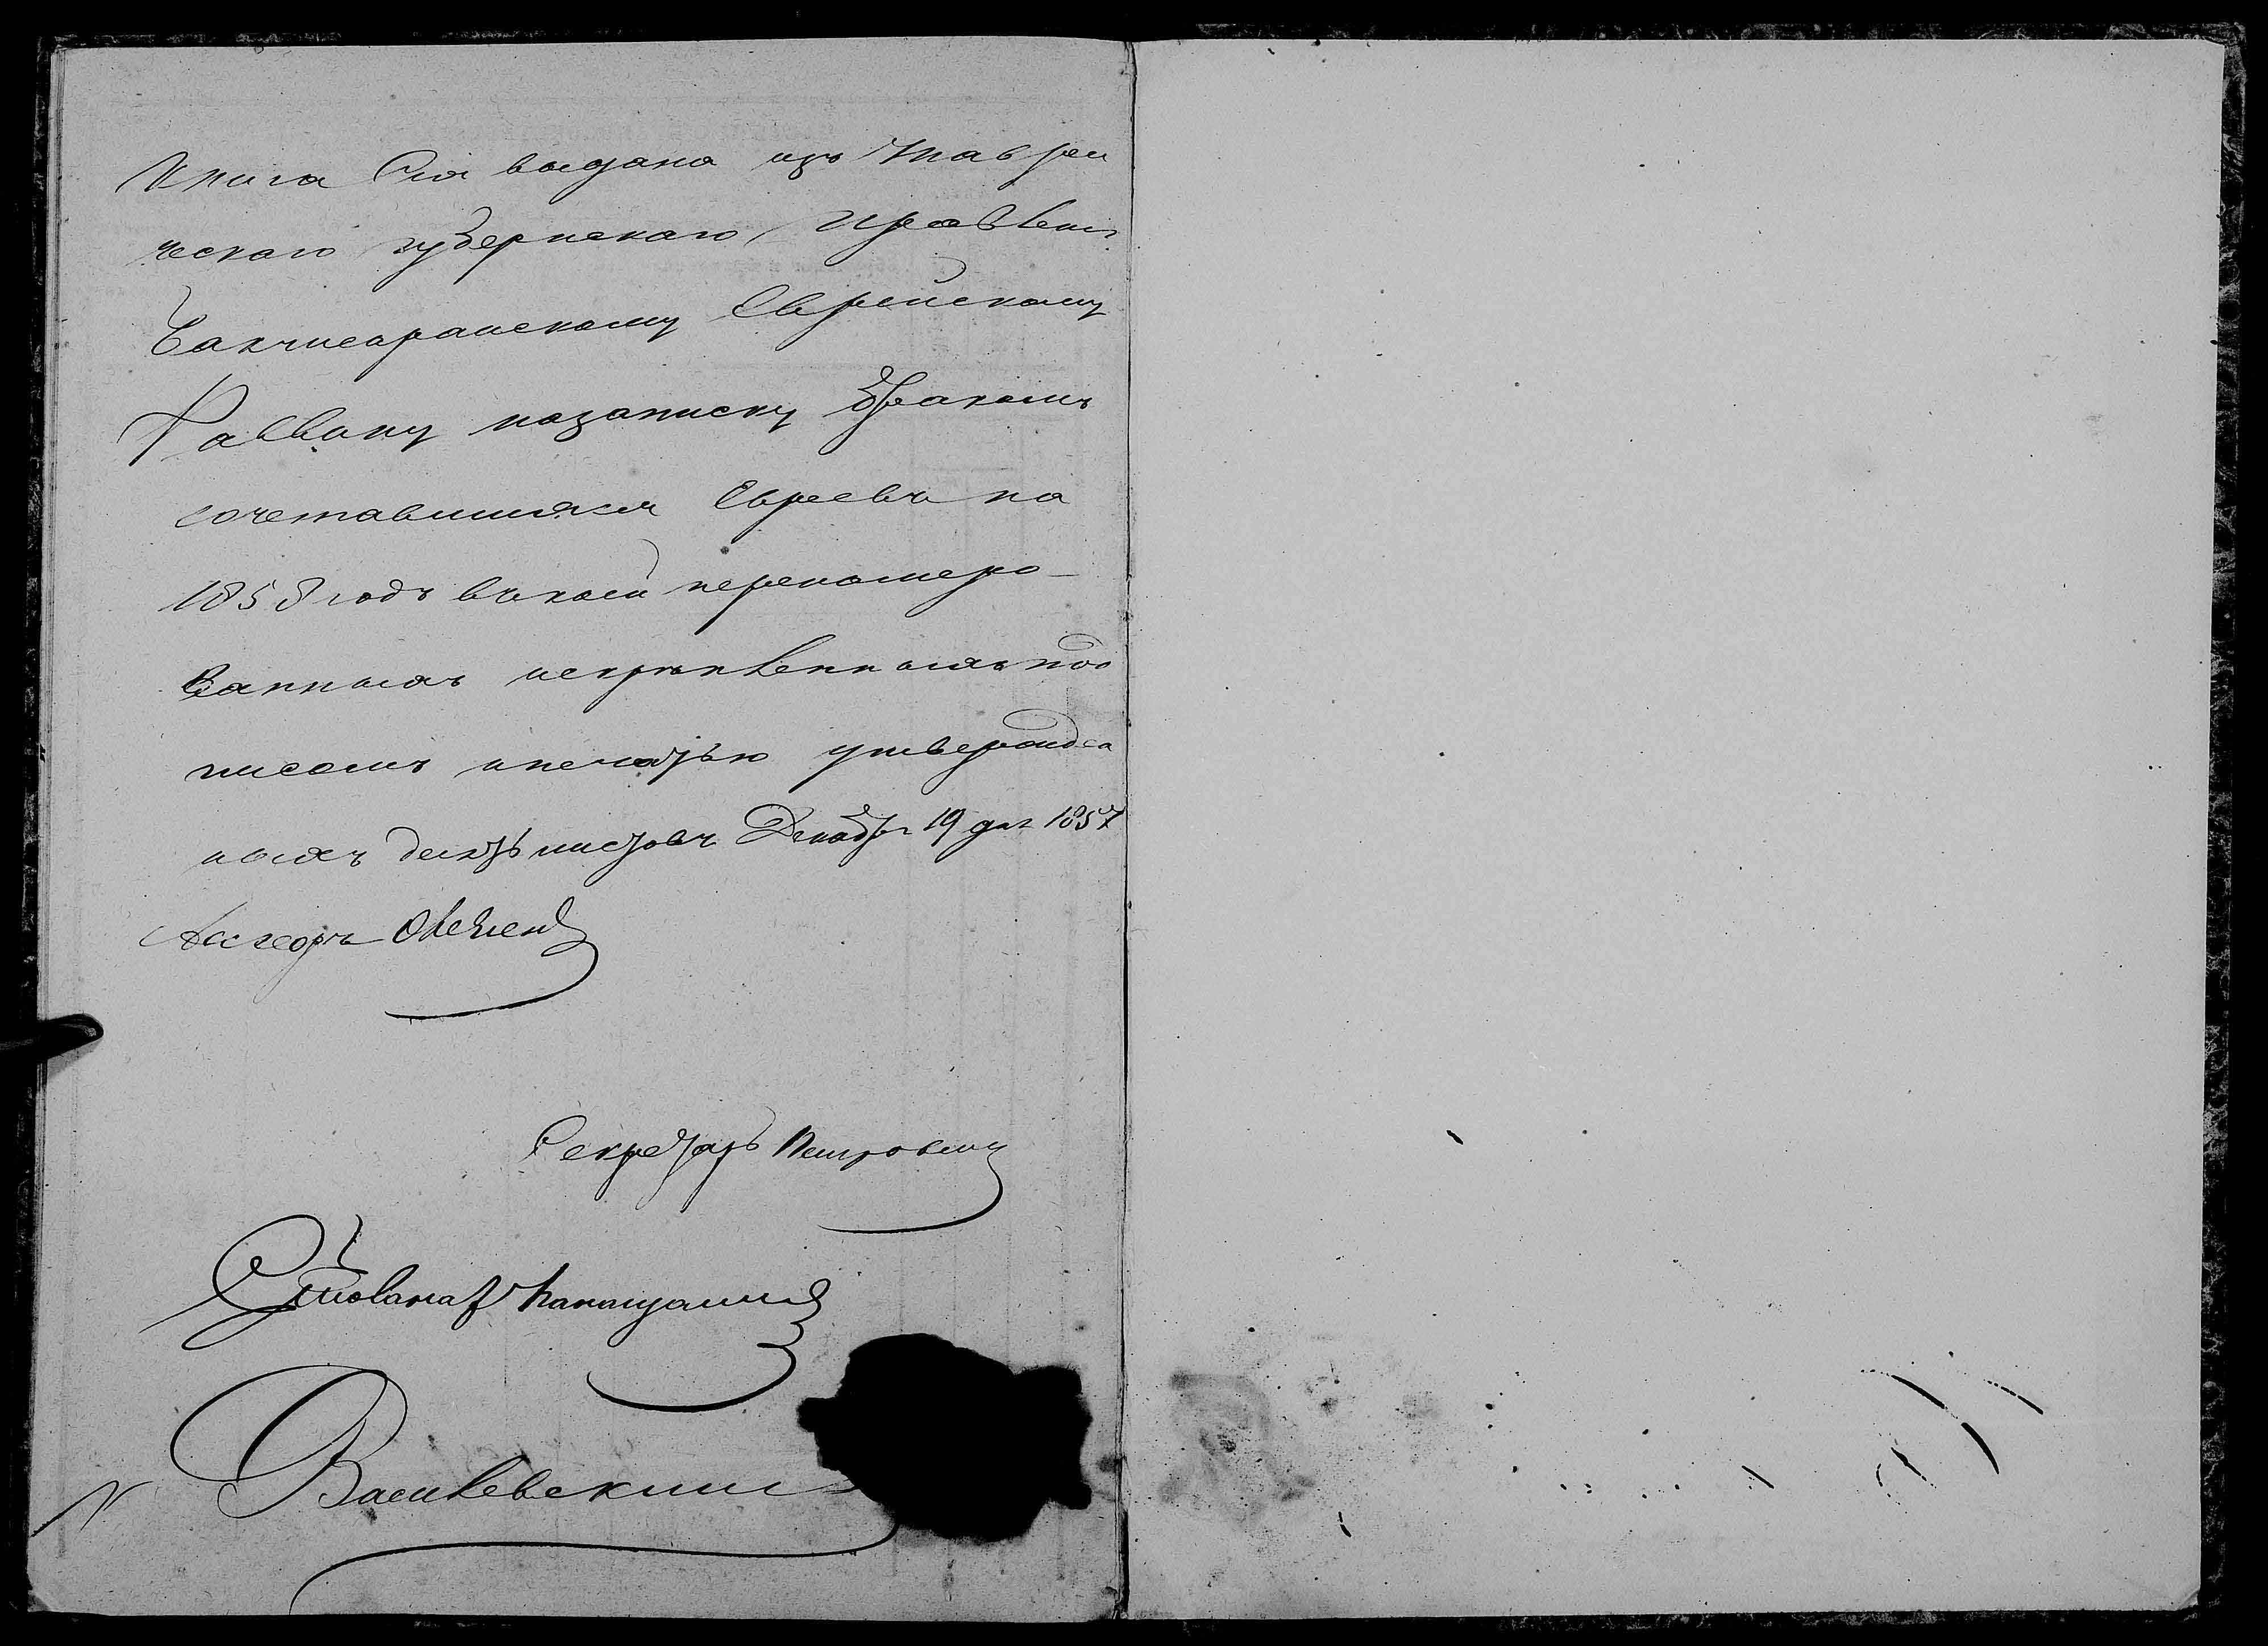 Книга Сія выдана изъ Таври
ческаго губернскаго Правленія
Бакчисарайскому Еврейскому
Раввину назаписку бракомъ
сочетавшихся Евреевъ на
1858 годъ вькоей перенумеро-
ванныхъ искрѣпленныхъ под
писомъ ипечатью утвержден
ныхъ десять листовъ Декабря 19 дня 1857
Ассесоръ
Секретарь Петровскій
Столоначаль
Василевскій